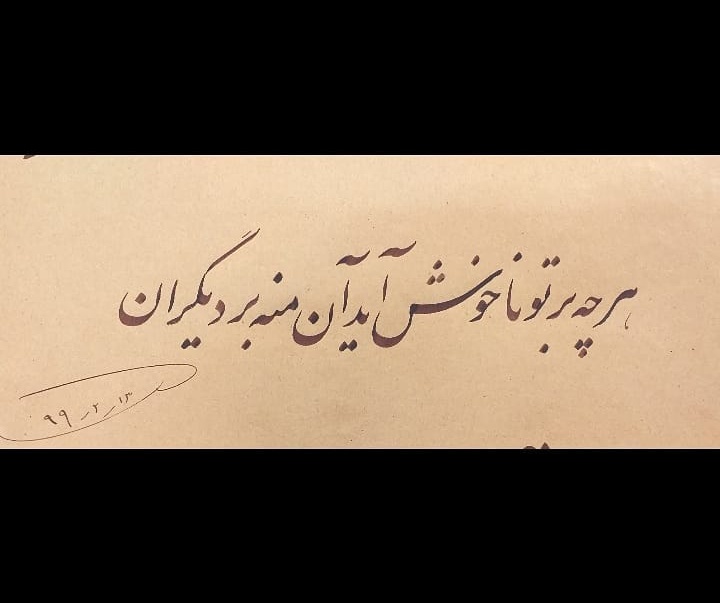 هرچه بر تو ناخوش آید آن منه بر دیگران
۹۹